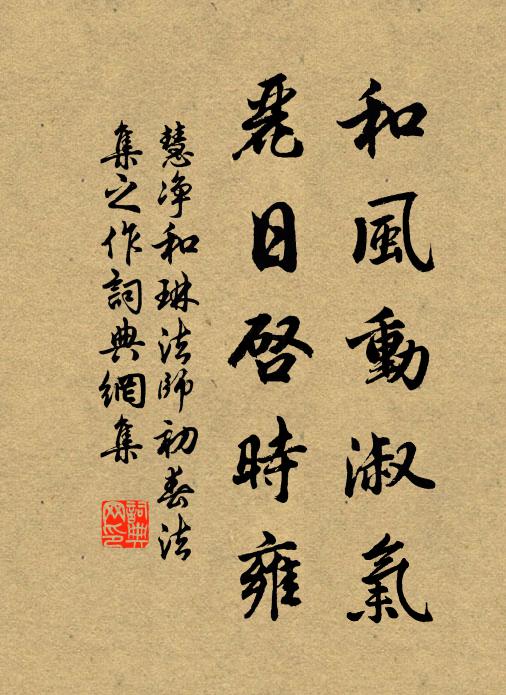 和風動淑氣
麗日啓時雍
慧净和琳法師初春法
集之作詞典網集
詞典網印